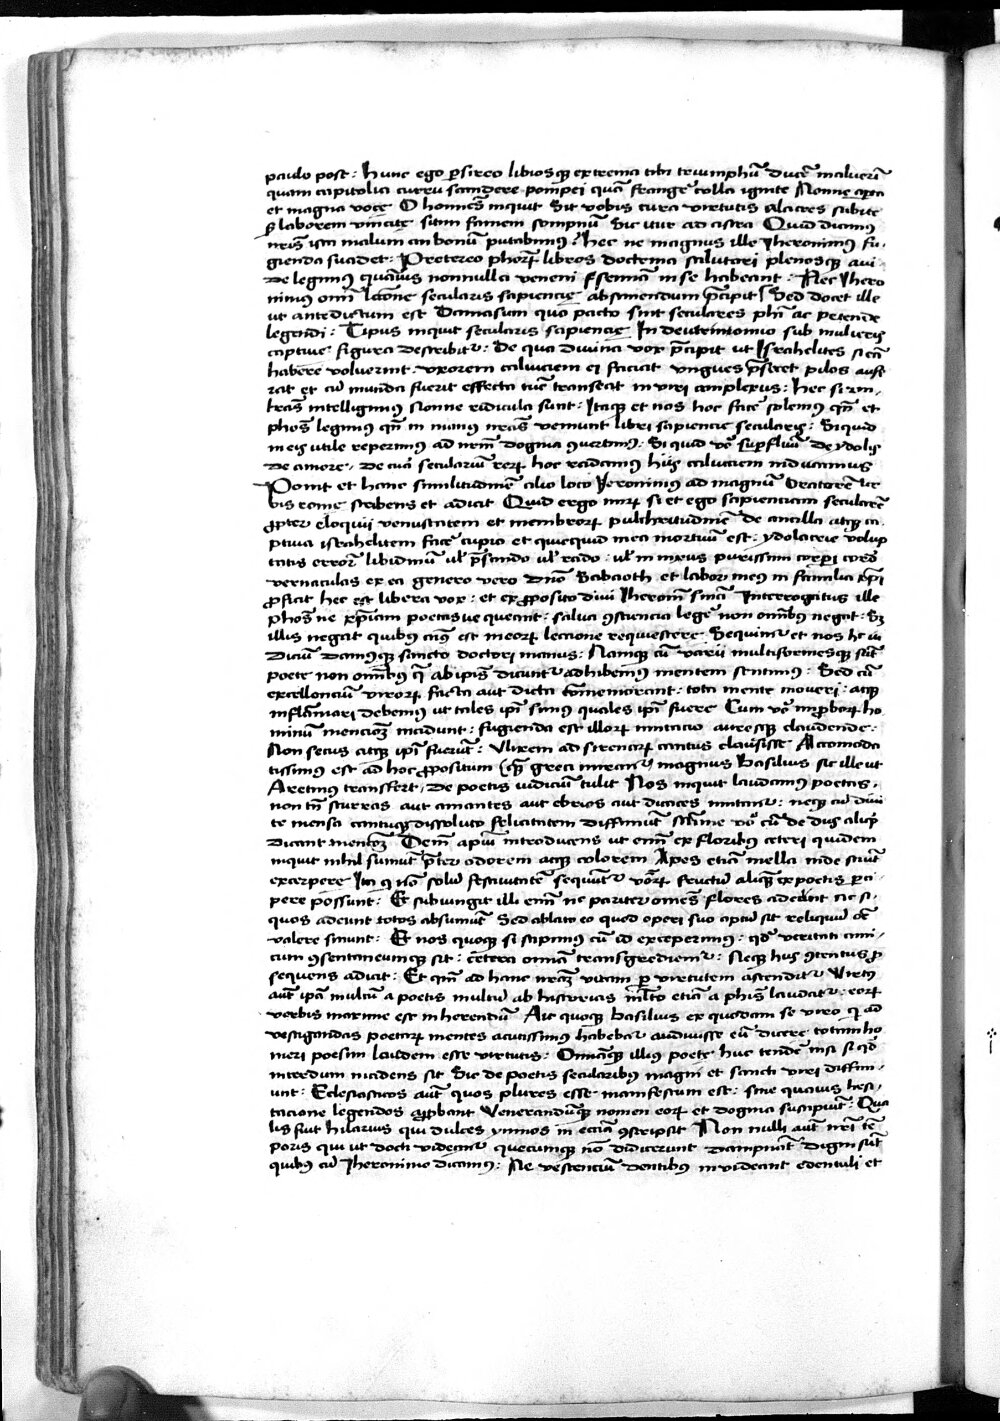 paulo post : Hunc ego p̱ sirco libiosqꝫ extrema tibi triumphū ducē̄ maluerī
quam capitolia curru scandere pompei quā frangē colla
et magna voce O homines inquit Sit vobis cura virtutis Alacres subite
ꝑ laborem vincite sitim famem sompnū Sic itur ad astra Quid dicimus
nr̄is ista malum an bonum putabimus ? hec ne magnus ille Jheronimus fu-
gienda suadet : Pretereo phorꝫ libros doctrina salutari plenosqꝫ aui-
de legimus quāuis nonnulla veneni in se habeant : Nec Jhero
nimus omī lc̄one secularis sapiencie abstinendum p̄cipit Sed docet ille
ut antedictum est Damasum quo pacto sint seculares phī ac poetande
legendi : Tipus inquit secularis sapiencie In deutrinomio sub mulieris
captiue figura describitr̄ : De qua diuina vox p̄cipit ut Israhelites si eā
habere voluerint vxorem caluiciem ei faciat vngues p̄secet pilos aufe
rat et cū munda fuerit effecta tūc transeat in viri complexus : hec si scdm̄
lr̄as intelligimus Nonne ridicula sunt : Itaqꝫ et nos hoc facē solemus qn̄ et
phos legimus qn̄ in manus nr̄as veniunt libri sapiencie secularis : Si quid
in eis vtile reperimus ad nr̄m dogma ꝯuertimus : Si quid vō supfluū de ydolis
de amore . de cura seculariū rerꝫ hoc radamus hiis caluiciem inducamus
Ponit et hanc similitudinē alio loco Jeronimus ad magnū Oratorē vr
bis rome scribens et adicat Quid ergo mirꝫ si et ego sapienciam secularē
ꝓpter eloquii venustatem et membrorꝫ pulchritudinē de ancilla atqꝫ ca
ptiua israhelitem facē cupio et quicquid in ea mortuū est : ydolatrie volup
tatis erroris libidinū ul̄ p̄scindo ul̄ rado : ul̄ mixtus purissimi corpi
vernaculas ex ea genero vero dn̄o Sabaoth et labor meus in familia xp̄i
ꝓficit hec est libera vox : et ex ꝓposito diui Jheronimi sancti Interrogatus ille
phos ne xp̄iani poetasue queant : salua ꝯsciencia legē non omībus negat : Sꝫ
illis negat quibus anīus est in eorꝫ leccione requiescere : Sequimur et nos hoc iu
dicium damusqꝫ sancto doctori manus : Namqꝫ cū varii multiformesqꝫ sūt
poete non omībus qꝫ ab ipīs dicuntr̄ adhibemus mentem sentimus : Sed cū
excellenciū virorꝫ facta aut dicta commemorant : tota mente moueri : atqꝫ
inflāmari debemus ut tales ipī simus quales ipī fuere Cum vō improborꝫ ho
minum mencionē incidunt : fugienda est illorꝫ imitacio auresqꝫ claudende :
Non secus atqꝫ ipī fuerūt : Vlixem ad sirenarꝫ cantus clausisse Accomoda
tissimus est ad hoc ꝓpositum (qꝫ greci mirantr̄) magnus Basilius sic ille ut
Aretinus transfert : De poetis iudiciū tulit Nos inquit laudamus poetas :
non tn̄ scurras aut amantes aut ebrios aut dicaces imitantr̄ : neqꝫ cū diui
te mensa cantuqꝫ dissoluto felicitatem diffiniūt Minime vō cū de dijs aliqꝫ
dicant mencionꝫ Demū apum introducens ut enim ex floribus ceteri quidem
inquit nihil sumūt p̄ter odorem atqꝫ colorem Apes etiā mella inde sciūt
excerpere Ita qui nō solū festiuitatē sequūtr̄ vōrꝫ fructū aliqꝫ ex poetis ꝑci
pere possunt : Et subiungit illi enim nec pariter omēs flores adeūnt nec si
quos adeunt totos absumūt Sed ablato eo quod operi suo aptū sit reliquū oē
valere sinunt : Et nos quoqꝫ si sapimus cū id exceperimus : qd̄ veritati ami-
cum ꝯsentaneumqꝫ sit : cetera omnia transgrediemr̄ : Neqꝫ hijs ꝯtentus ꝑ
sequens adicit : Et qm̄ ad hanc nr̄am vitam ꝑ virtutem ascenditr̄ Virtus
aūt ipa multū a poetis multū ab historicis mlto etiā a phis laudatr̄ : eorꝫ
verbis maxime est inherendū Ait quoqꝫ Basilius ex quodam se viro qui ad
vestigandas poetarꝫ mentes acutissimus habebatr̄ audiuisse eū dicere totam ho
meri poesim laudem esse virtutis : Omniaqꝫ illius poete huc tendē nisi si qd̄
interdum incidens sit Sic de poetis secularibus magni et sancti viri diffini-
unt : Eclesiasticos aūt quos plures esse manifestum est : sine quauis hesi-
tacione legendos ꝓbant Venerandūqꝫ nomen eorꝫ et dogma suscipiūt : Qua
lis fuit hilarius qui dulces ymnos in ecc̄ia ꝯscripsit Non nulli aūt nr̄i tē
poris qui ut docti videantr̄ quecumqꝫ nō didicerunt dampnāt digni sūt
quibus cū Jheronimo dicamus : Ne vescenciū dentibus inuideant edentuli et